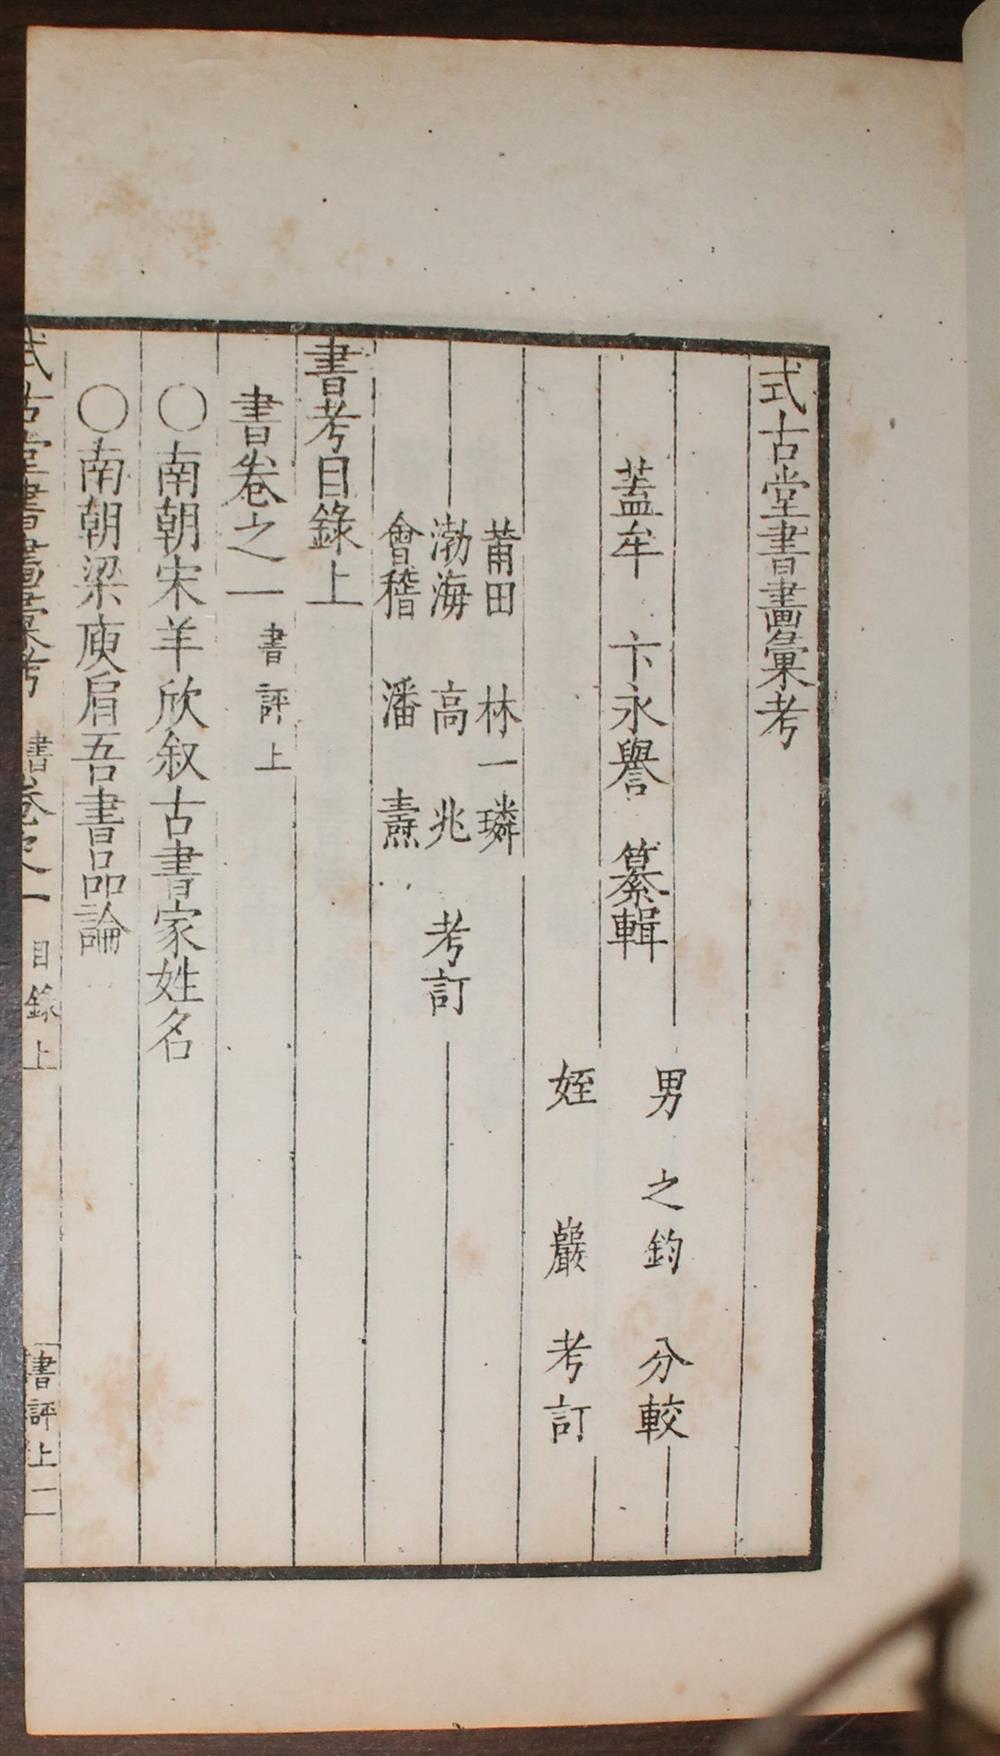 式古堂書畫彙考
蓋牟 卞永譽 纂輯
男 之鈞 分較
姪 巖 考訂
莆田 林一璘
渤海 高兆 考訂
會稽 潘燾
書考目錄上
書卷之一 書評上
○南朝宋羊欣叙古書家姓名
○南朝梁庾肩吾書品論
式古堂書畫彙考 書卷之一 目錄上 書評上 二